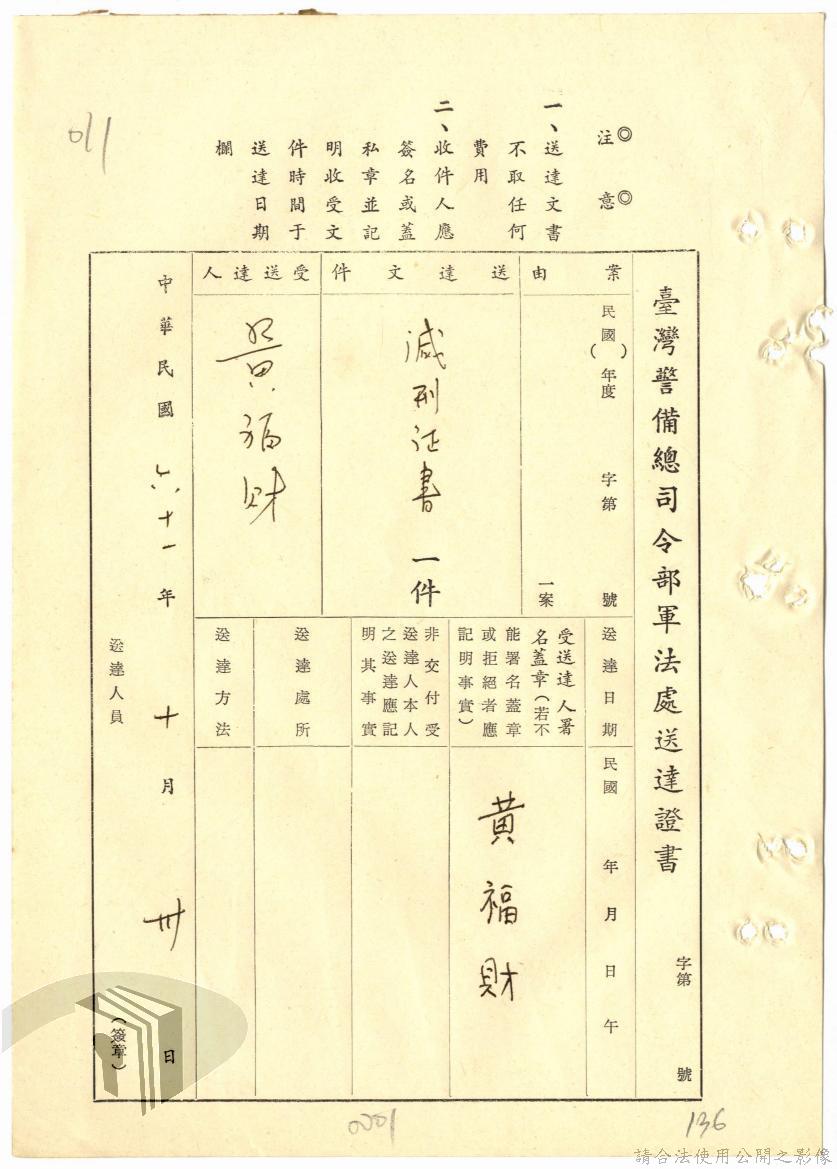 011
◎注意◎
一、送達文書
不取任何
費用
二、收件人應
簽名或蓋
私章並記
明收受文
件時間于
送達日期
欄
臺灣警備總司令部軍法處送達證書 字第 號
案由
民國( )年度 字第 號
一案
送達文件
減刑证書 一件
受送達人
黃福財
送達日期
民國 年 月 日 午
受送達人署
名蓋章(若不
能署名蓋章
或拒絕者應
記明事實)
黃福財
非交付受
送達人本人
之送達應記
明其事實
送達處所
送達方法
中華民國 六十一年 十月 卅日
送達人員 (簽章)
0001
136
請合法使用公開之影像